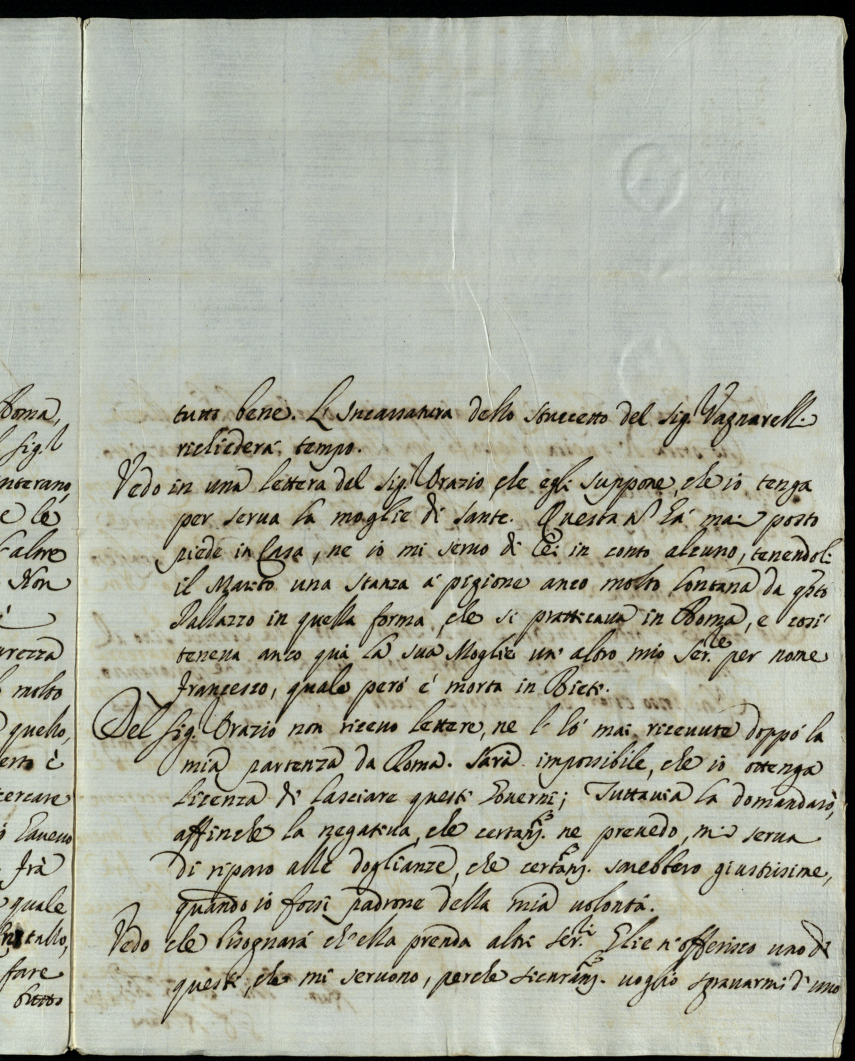 Roma,
Sig.l
e le
l'altre
Non
molto
quello,
è
cercare
Frà
quale
fare
tutto bene. L'incassatura dello stuccetto del Sig.r Vagnarelli
richiederà tempo.
Vedo in una lettera del Sig.r Orazio, che egli suppone, che io tenga
per serva la moglie di Sante. Questa n hà mai posto
piede in Casa, ne io mi servo di lei in conto alcuno, tenendoli
il Marito una stanza à pigione anco molto lontana da qsto
Pallazzo in quella forma, che si pratticava in Roma, e così
teneva anco quà la sua Moglie un'altro mio Ser.le per nome
Francesco, quale però è morta in Rieti.
Del Sig.r Orazio non ricevo lettere, ne l'hò mai ricevute doppò la
mia partenza da Roma. Sarà impossibile, che io ottenga
licenza di lasciare questi Governi; Tuttavia la domandarò,
affinche la negativa, che certam. ne prevedo, mi serva
di riparo alle doglianze, che certam. sarebbero giustissime,
quando io fossi padrone della mia volontà.
Vedo che bisognarà ch'ella prenda altri Ser.li Gliene offerisco uno di
questi, che mi servono, perche sicuram. voglio sgravarmi d'uno